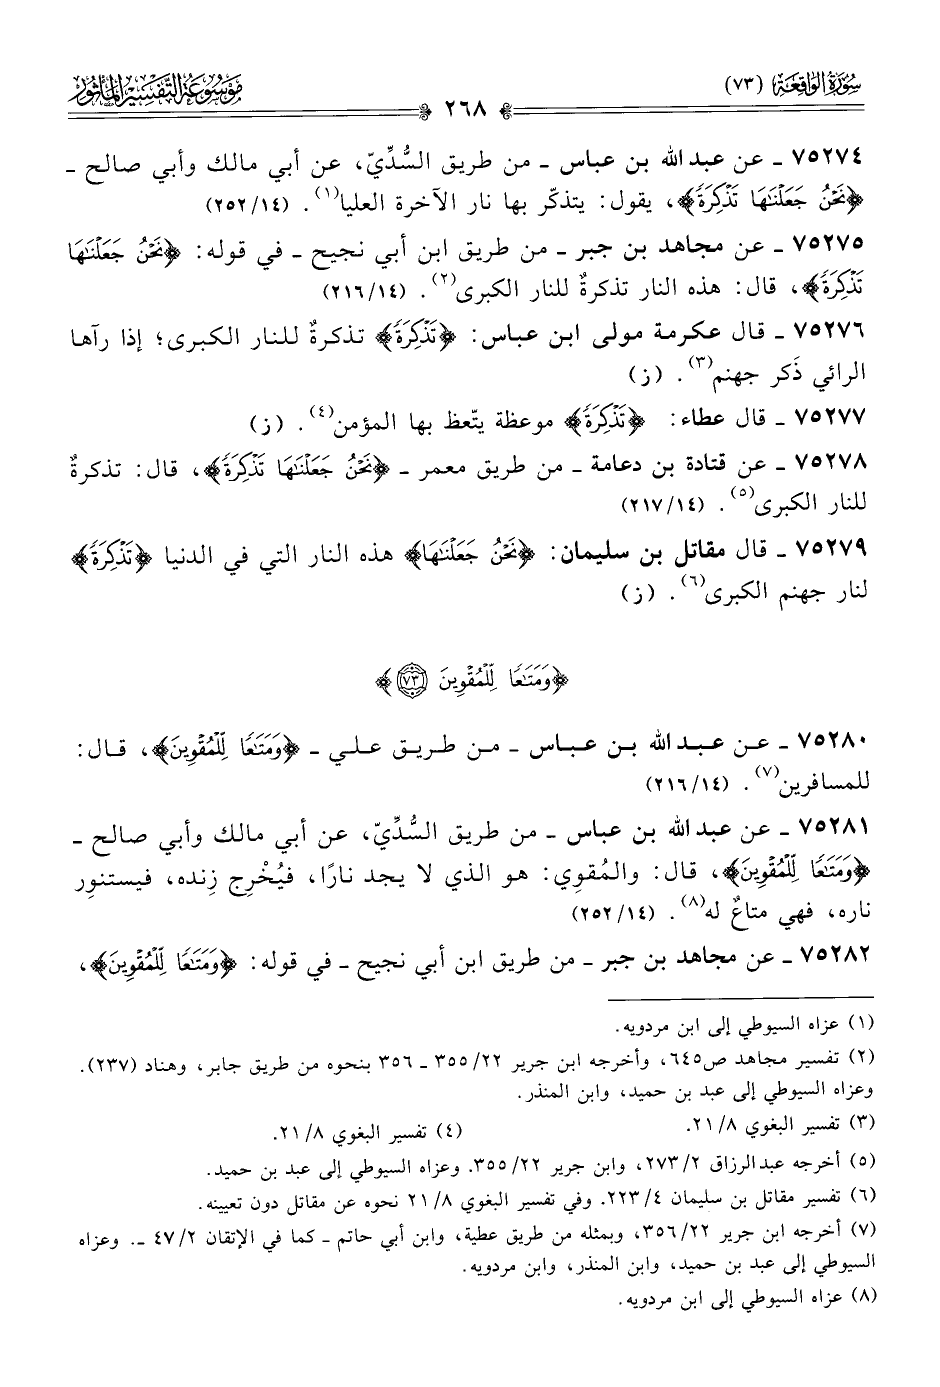 سُورَةُ الوَاقِعَةِ (٧٣)
٢٦٨
مَوْسُوعَةُ التَّفْسِيرِ المَأْثُور
٧٥٢٧٤ ـ عن عبد الله بن عباس ـ من طريق السُّدِّيّ، عن أبي مالك وأبي صالح ـ
﴿نَحْنُ جَعَلْنَٰهَا تَذْكِرَةً﴾، يقول: يتذكّر بها نار الآخرة العليا(١). (١٤/ ٢٥٢)
٧٥٢٧٥ ـ عن مجاهد بن جبر ـ من طريق ابن أبي نجيح ـ في قوله: ﴿نَحْنُ جَعَلْنَٰهَا
تَذْكِرَةً﴾، قال: هذه النار تذكرةٌ للنار الكبرى(٢). (١٤/ ٢١٦)
٧٥٢٧٦ ـ قال عكرمة مولى ابن عباس: ﴿تَذْكِرَةً﴾ تذكرةٌ للنار الكبرى؛ إذا رآها
الرائي ذَكر جهنم(٣). (ز)
٧٥٢٧٧ ـ قال عطاء: ﴿تَذْكِرَةً﴾ موعظة يتّعظ بها المؤمن(٤). (ز)
٧٥٢٧٨ ـ عن قتادة بن دعامة ـ من طريق معمر ـ ﴿نَحْنُ جَعَلْنَٰهَا تَذْكِرَةً﴾، قال: تذكرةٌ
للنار الكبرى(٥). (١٤/ ٢١٧)
٧٥٢٧٩ ـ قال مقاتل بن سليمان: ﴿نَحْنُ جَعَلْنَٰهَا﴾ هذه النار التي في الدنيا ﴿تَذْكِرَةً﴾
لنار جهنم الكبرى(٦). (ز)
﴿وَمَتَٰعًا لِّلْمُقْوِينَ ٧٣﴾
٧٥٢٨٠ ـ عن عبد الله بن عباس ـ من طريق علي ـ ﴿وَمَتَٰعًا لِّلْمُقْوِينَ﴾، قال:
للمسافرين(٧). (١٤/ ٢١٦)
٧٥٢٨١ ـ عن عبد الله بن عباس ـ من طريق السُّدِّيّ، عن أبي مالك وأبي صالح ـ
﴿وَمَتَٰعًا لِّلْمُقْوِينَ﴾، قال: والمُقوِي: هو الذي لا يجد نارًا، فيُخْرِج زِنده، فيستنوِر
ناره، فهي متاعٌ له(٨). (١٤/ ٢٥٢)
٧٥٢٨٢ ـ عن مجاهد بن جبر ـ من طريق ابن أبي نجيح ـ في قوله: ﴿وَمَتَٰعًا لِّلْمُقْوِينَ﴾،
(١) عزاه السيوطي إلى ابن مردويه.
(٢) تفسير مجاهد ص٦٤٥، وأخرجه ابن جرير ٢٢/ ٣٥٥ ـ ٣٥٦ بنحوه من طريق جابر، وهناد (٢٣٧).
وعزاه السيوطي إلى عبد بن حميد، وابن المنذر.
(٣) تفسير البغوي ٨/ ٢١.
(٤) تفسير البغوي ٨/ ٢١.
(٥) أخرجه عبدالرزاق ٢/ ٢٧٣، وابن جرير ٢٢/ ٣٥٥. وعزاه السيوطي إلى عبد بن حميد.
(٦) تفسير مقاتل بن سليمان ٤/ ٢٢٣. وفي تفسير البغوي ٨/ ٢١ نحوه عن مقاتل دون تعيينه.
(٧) أخرجه ابن جرير ٢٢/ ٣٥٦، وبمثله من طريق عطية، وابن أبي حاتم ـ كما في الإتقان ٢/ ٤٧ ـ. وعزاه
السيوطي إلى عبد بن حميد، وابن المنذر، وابن مردويه.
(٨) عزاه السيوطي إلى ابن مردويه.